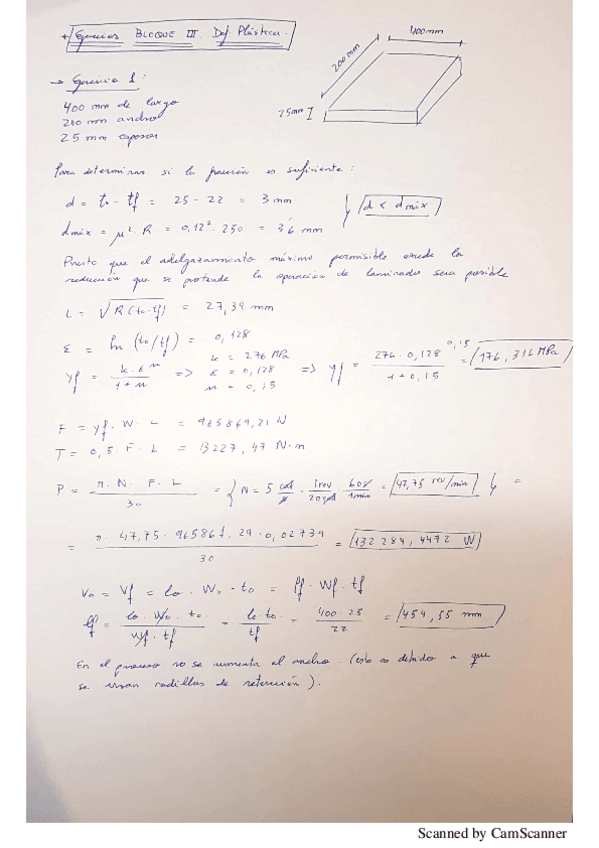 + Ejercicios BLOQUE III. Def Plástica.
400 mm
200 mm
25 mm
→ Ejercicio 1:
400 mm de largo
200 mm ancho
25 mm espesor
Para determinar si la fricción es suficiente:
d = to - tf = 25 - 22 = 3 mm
d < dmáx
dmáx = μ² · R = 0,12² · 250 = 3'6 mm
Puesto que el adelgazamiento máximo permisible excede la
reducción que se pretende la operación de laminado será posible
L = √R(to-tf) = 27,39 mm
ε = ln (to/tf) = 0,128
yf = k·εⁿ / 1+n => k = 276 MPa ε = 0,128 n = 0,15 => yf = 276 · 0,128^0,15 / 1+0,15 = 176,316 MPa
F = yf · W · L = 965869,21 N
T = 0,5 · F · L = 13227,47 N·m
P = π · N · F · L / 30 = { N = 5 rad/s · 1rev/2π rad · 60s/1min = 47,75 rev/min } =
= π · 47,75 · 965861,29 · 0,02739 / 30 = 132284,4472 W
Vo = Vf = lo · Wo · to = lf · Wf · tf
lf = lo · Wo · to / Wf · tf = lo·to / tf = 400·25 / 22 = 454,55 mm
En el proceso no se aumenta el ancho. (esto es debido a que
se usan rodillos de retención).
Scanned by CamScanner